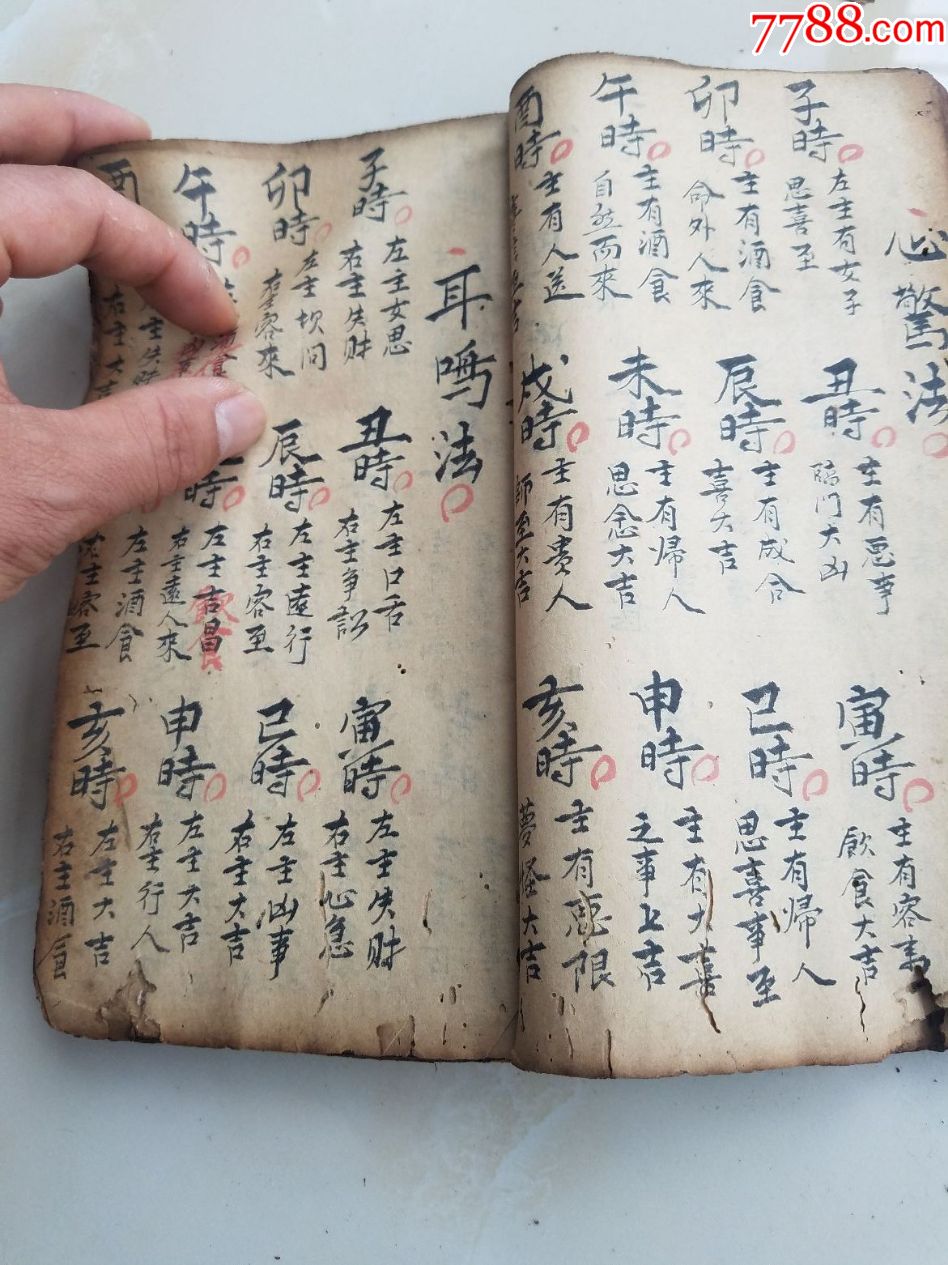 7788.com
心驚法
子時
左主有女子
思喜至
丑時
主有惡事
臨門大凶
寅時
主有客來
飲食大吉
卯時
主有酒食
命外人來
辰時
主有成合
喜大吉
巳時
主有歸人
思喜事至
午時
主有酒食
自然而來
未時
主有歸人
思念大吉
申時
主有大喜
之事上吉
酉時
主有人送
戌時
主有貴人
師至大吉
亥時
主有惡限
夢怪大吉
耳鳴法
子時
左主女思
右主失財
丑時
左主口舌
右主爭訟
寅時
左主失財
右主心急
卯時
左主坎问
右主客來
辰時
左主遠行
右主客至
巳時
左主凶事
右主大吉
午時
左主吉昌
飲食
右主遠人來
申時
左主大吉
右主行人
酉
主失財
右主大吉
左主酒食
主客至
亥時
左主大吉
右主酒食